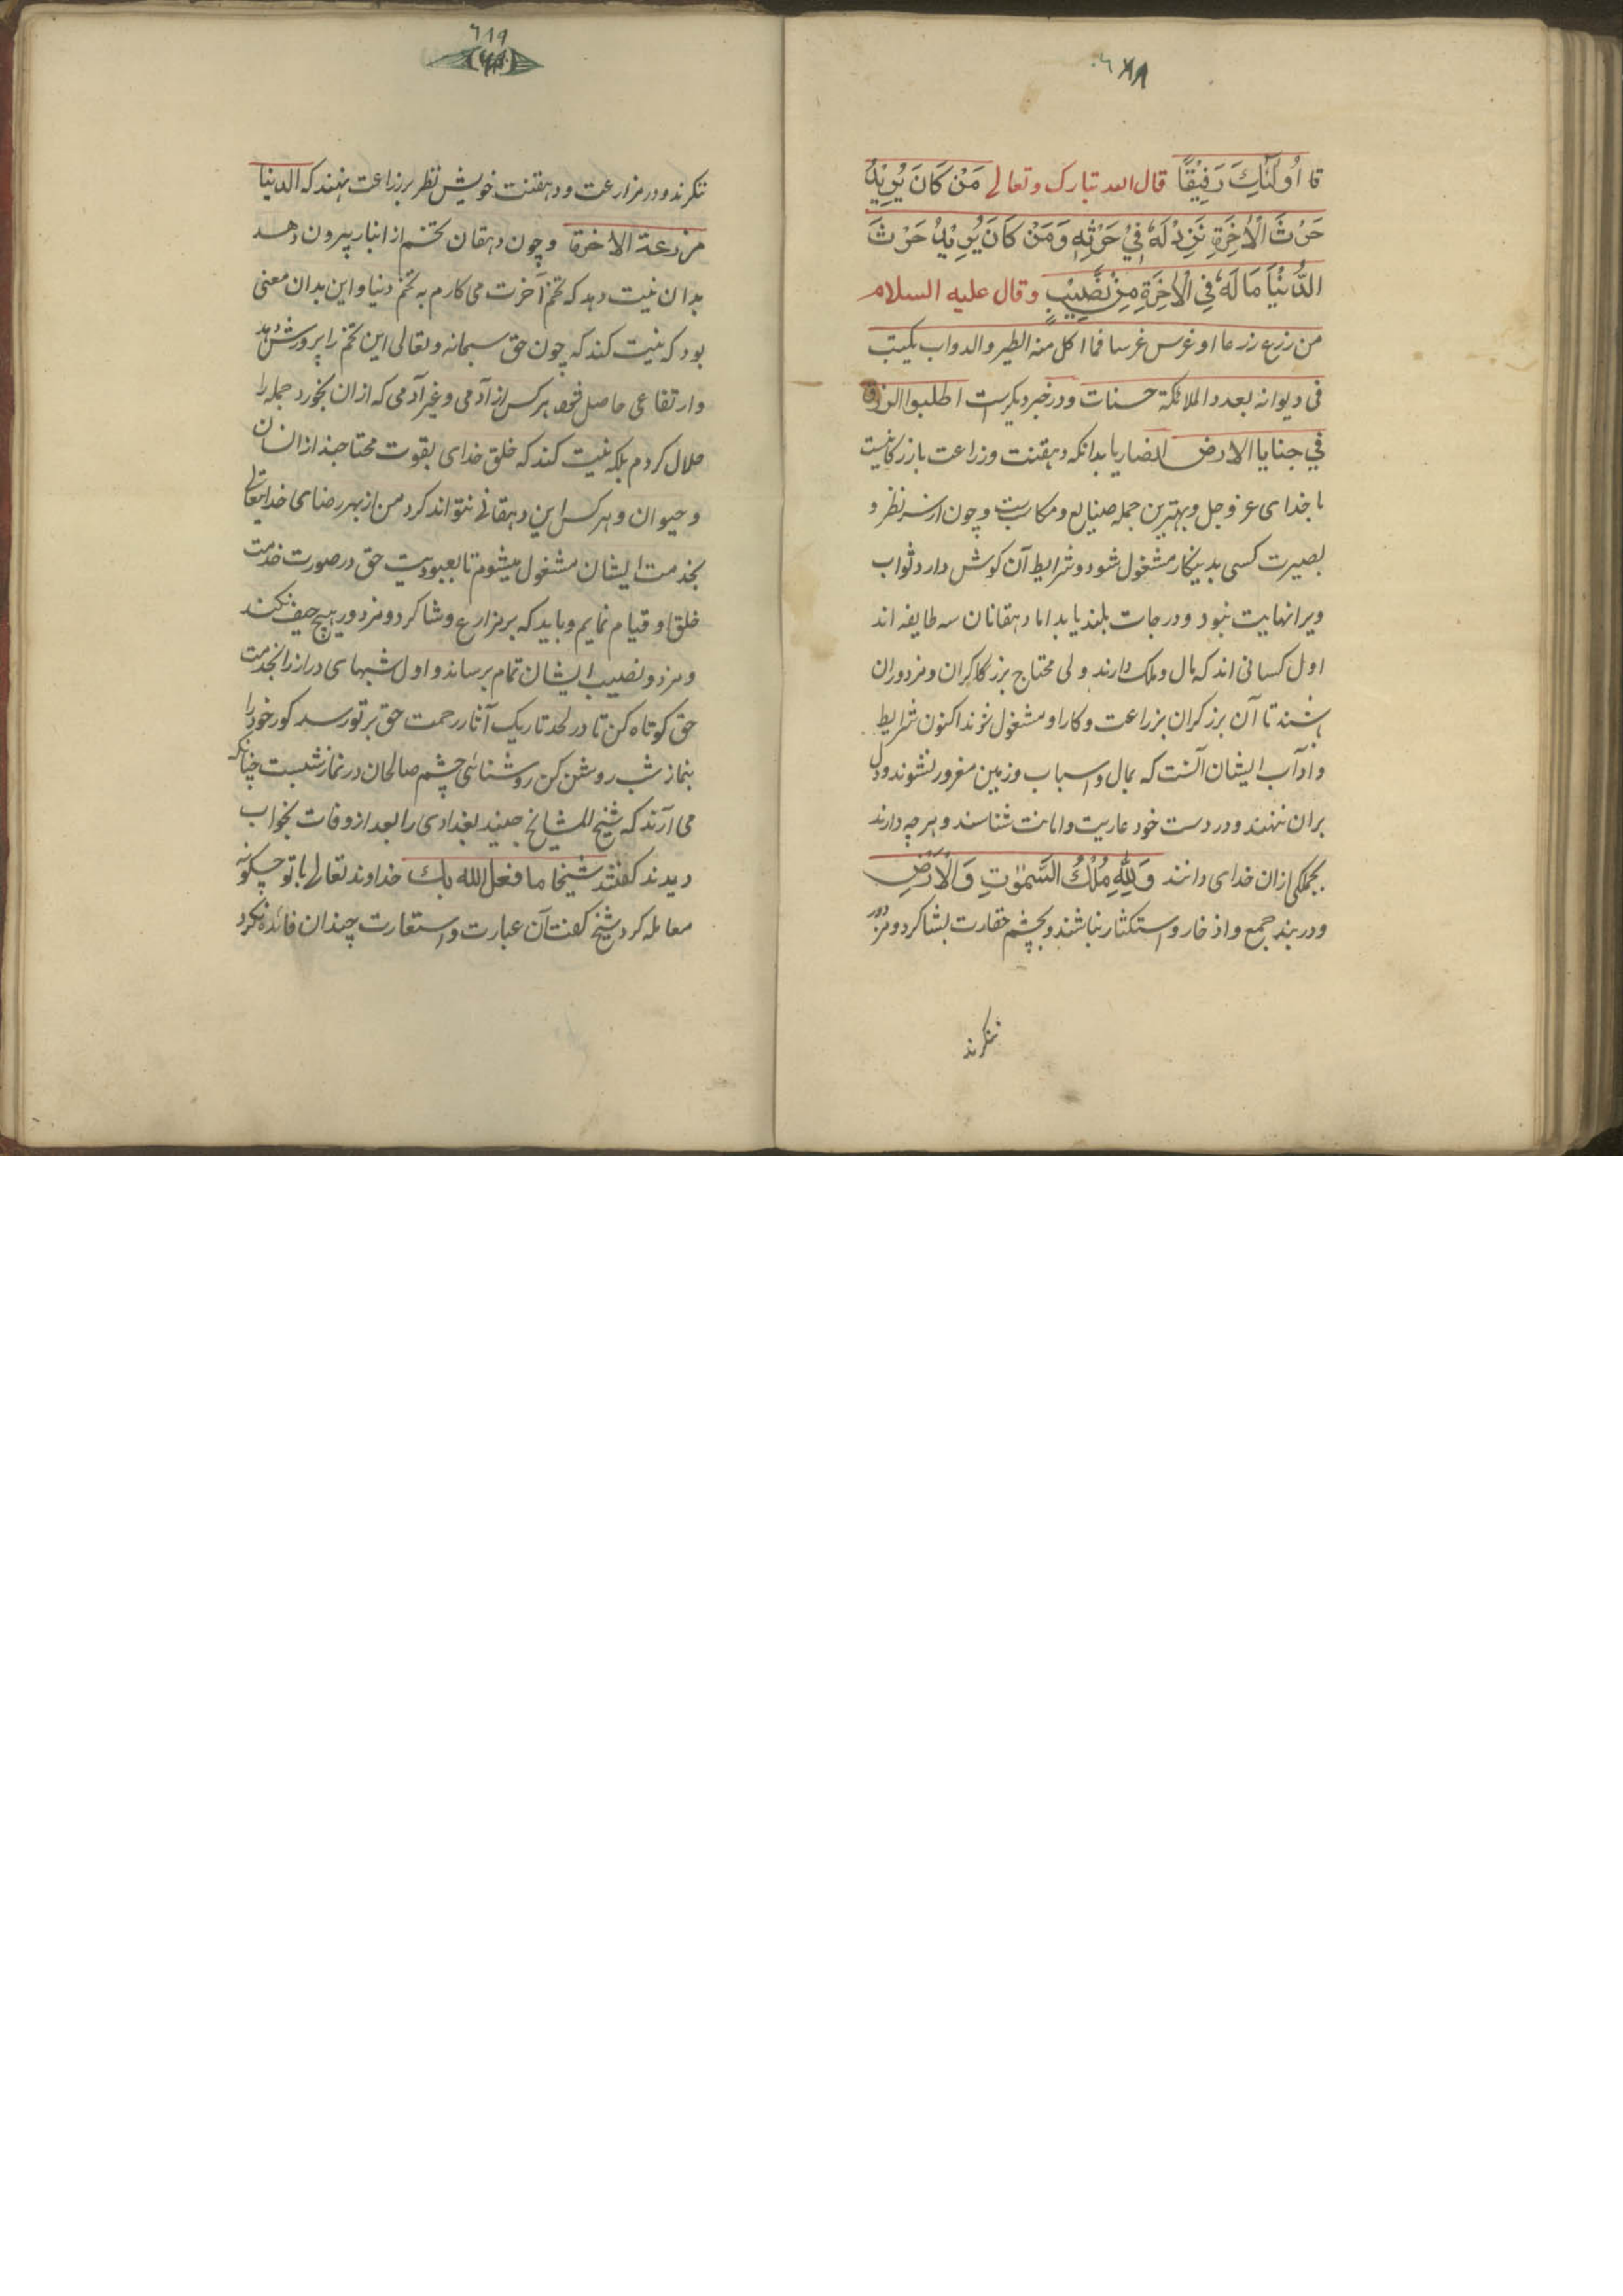 ٦٨٨
قا اُولٰئِكَ رَفِيْقًا قال الله تبارک وتعالی مَنْ كَانَ يُرِيْدُ
حَرْثَ الْاٰخِرَةِ نَزِدْ لَهٗ فِيْ حَرْثِهٖ وَمَنْ كَانَ يُرِيْدُ حَرْثَ
الدُّنْيَا مَا لَهٗ فِي الْاٰخِرَةِ مِنْ نَّصِيْبٍ وقال علیه السلام
من زرع زرعا او غرس غرسا فما اکل منه الطیر والدواب یکتب
فی دیوانه بعدد الملائکة حسنات ودر خبر دیکرست اطلبوا الرزق
في جنایا الارض بدانکه دهقنت وزراعت بازرکانیست
با خدای عز وجل وبهترین جمله صنایع ومکاسبست وچون از سر نظر و
بصیرت کسی بدینکار مشغول شود وشرایط آن کوش دارد ثواب
ویرا نهایت نبود ودرجات بلند یابد اما دهقانان سه طایفه اند
اول کسانی اند که مال وملک دارند ولی محتاج بزرکاکران ومزدوران
باشند تا آن برزکران بزراعت وکار او مشغول شوند اکنون شرایط
وادآب ایشان آنست که بمال واسباب وزمین مغرور نشوند ودل
بران ننهند ودر دست خود عاریت وامانت شناسند وهرچه دارند
بجملکی ازان خدای دانند وَلِلّٰهِ مُلْكُ السَّمٰوٰتِ وَالْاَرْضِ
ودر بند جمع واذخار واستکثار نباشند وبچشم حقارت بشاکرد ومزدور
ننکرند
٦٨٩
ننکرند ودر مزارعت ودهقنت خویش نظر بر زراعت ننهند که الدنیا
مزرعة الاخرة وچون دهقان تخم از انبار بیرون دهد
بدان نیت دهد که تخم آخرت می کارم به تخم دنیا واین بدان معنی
بود که نیت کند که چون حق سبحانه وتعالی این تخم را پرورش دهد
وارتفاعی حاصل شود هرکس از آدمی وغیر آدمی که ازان بخورد جمله را
حلال کردم بلکه نیت کند که خلق خدای بقوت محتاجند از انسان
وحیوان وهرکس این دهقانی نتواند کرد من از بهر رضای خدایتعالی
بخدمت ایشان مشغول میشوم تا بعبودیت حق در صورت خدمت
خلق او قیام نمایم وباید که بر مزارع وشاکرد ومزدور هیچ حیف نکند
ومزد ونصیب ایشان تمام برساند واول شبهای دراز را بخدمت
حق کوتاه کن تا در لحد تاریک آثار رحمت حق بر تو رسد کور خود را
بنماز شب روشن کن روشنائی چشم صالحان در نماز شبست چنانکه
می آرند که شیخ المشایخ جنید بغدادی را بعد از وفات بخواب
دیدند کفتند شیخا ما فعل الله بك خداوند تعالی با تو چکونه
معامله کرد شیخ کفت آن عبارت واستعارت چندان فائده نکرد